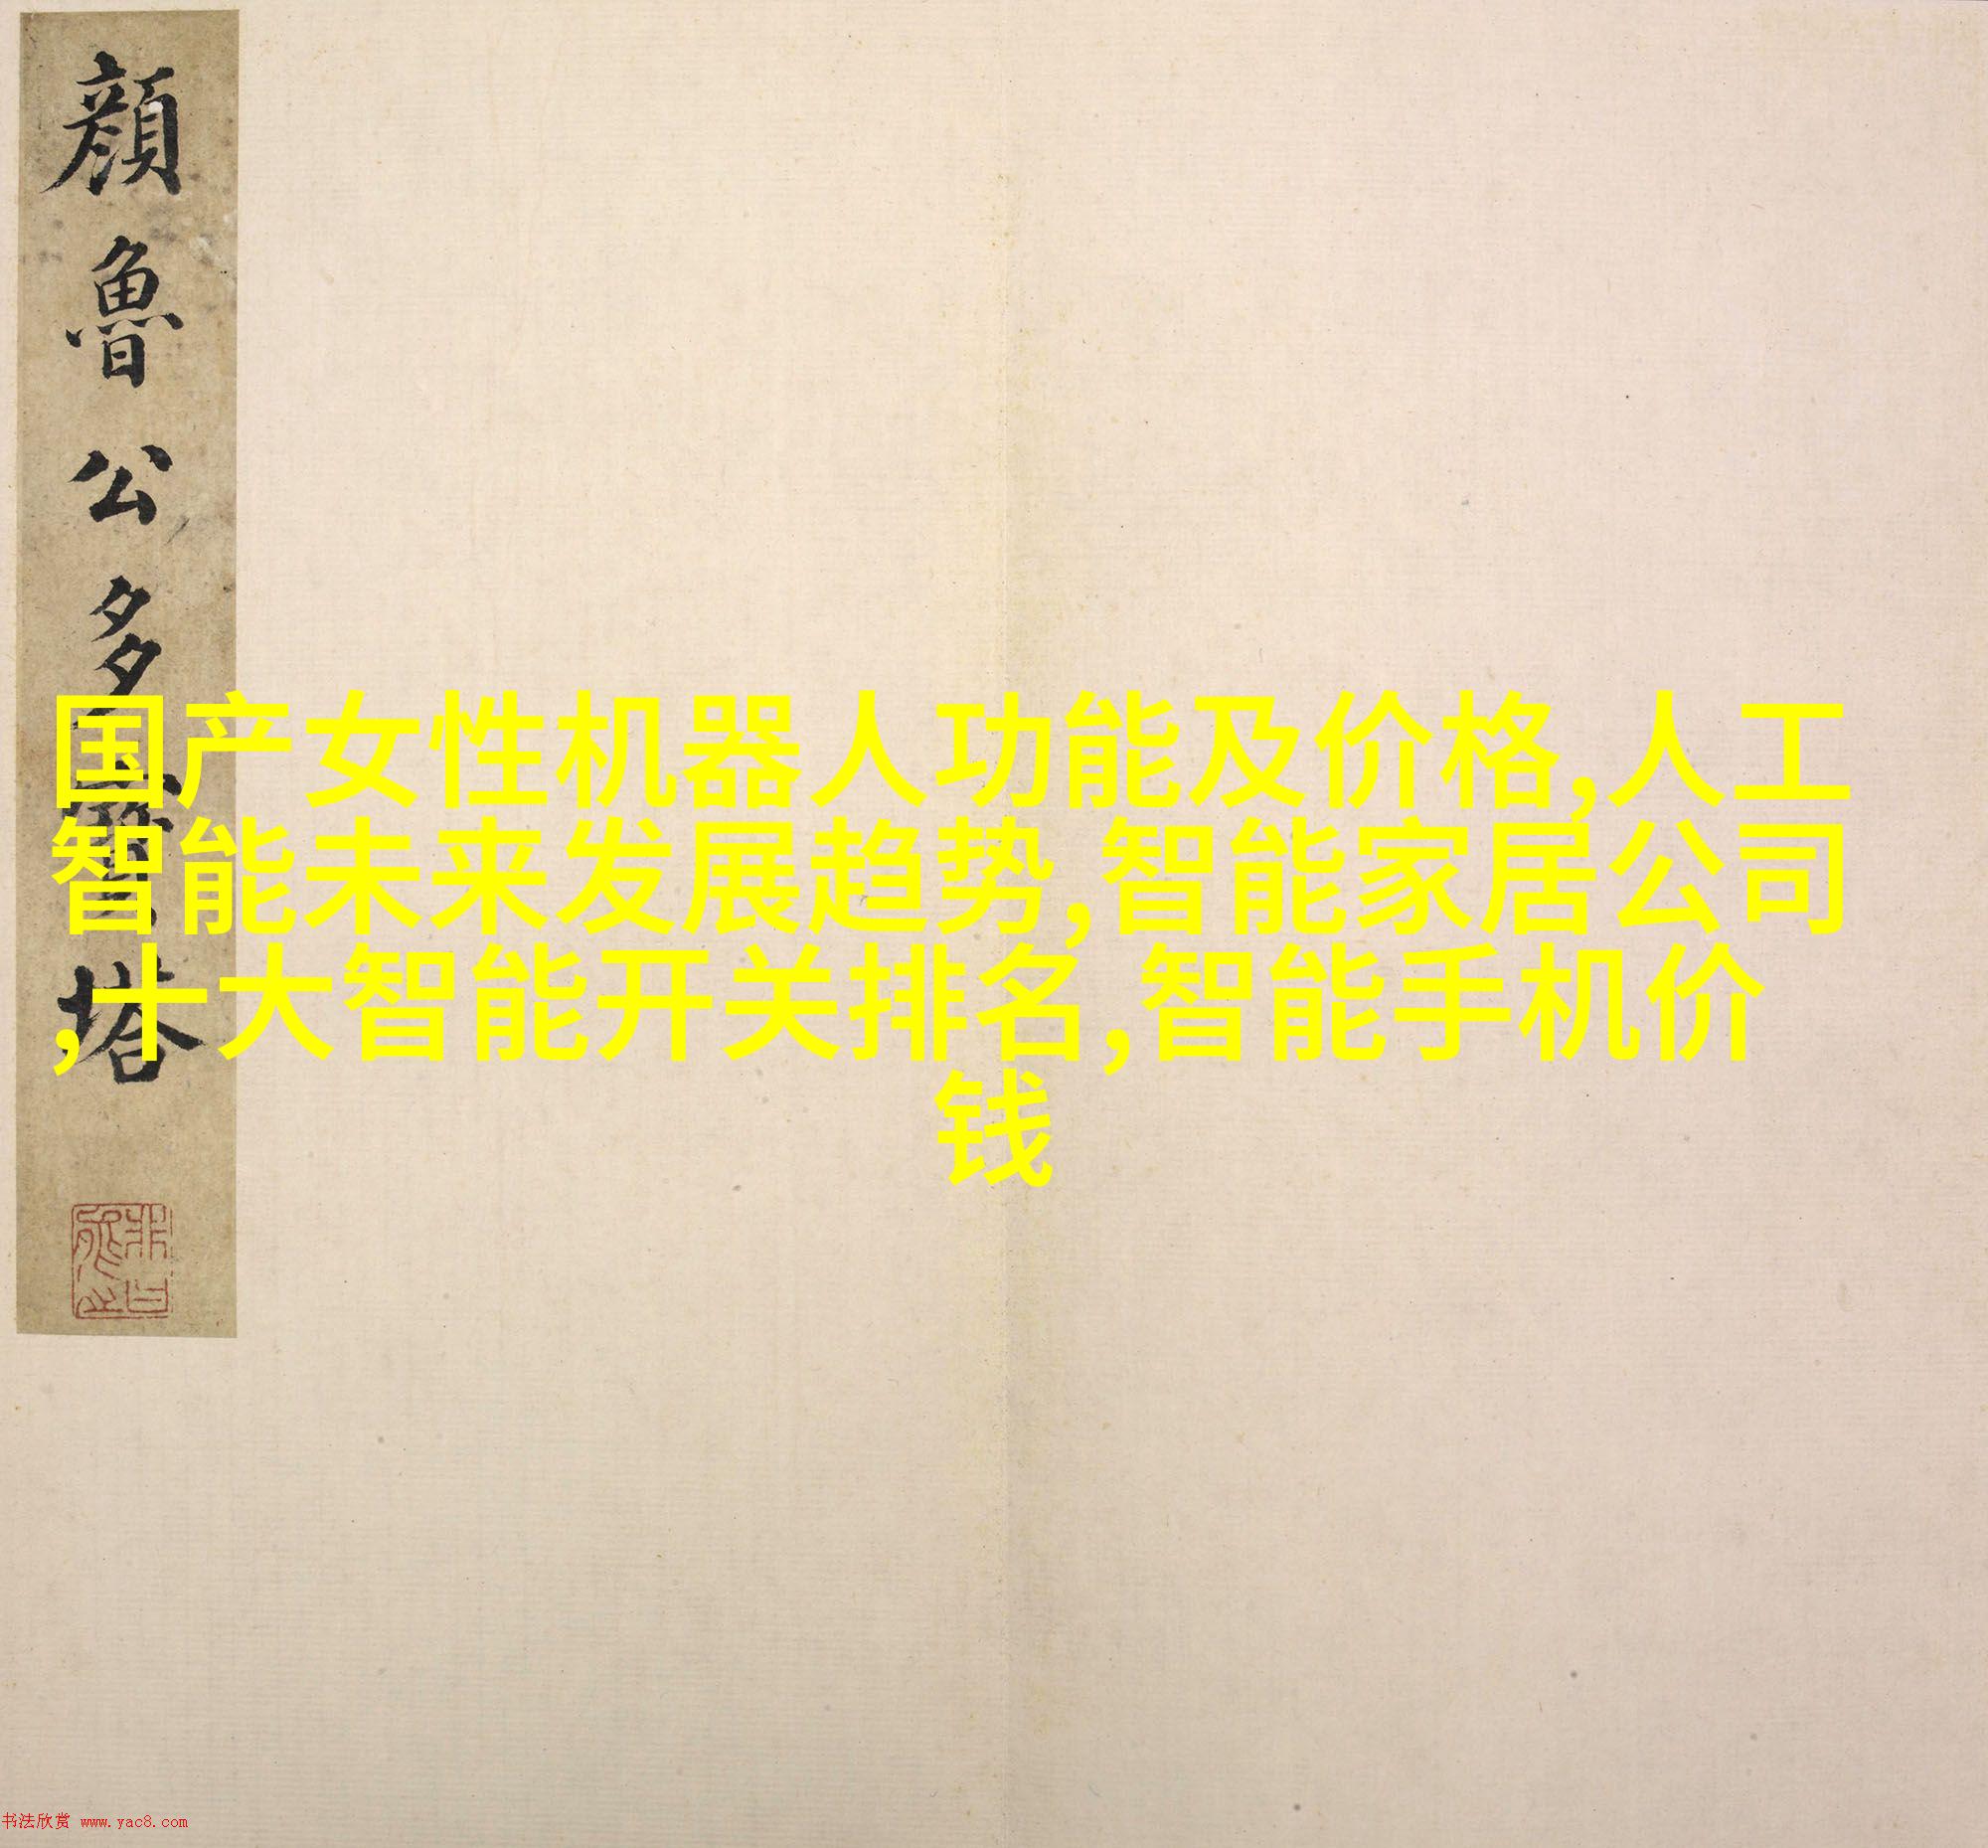 顔魯公多寶塔
国产女性机器人功能及价格,人工
智能未来发展趋势,智能家居公司
,十大智能开关排名,智能手机价
钱
书法欣赏 www.yac8.com